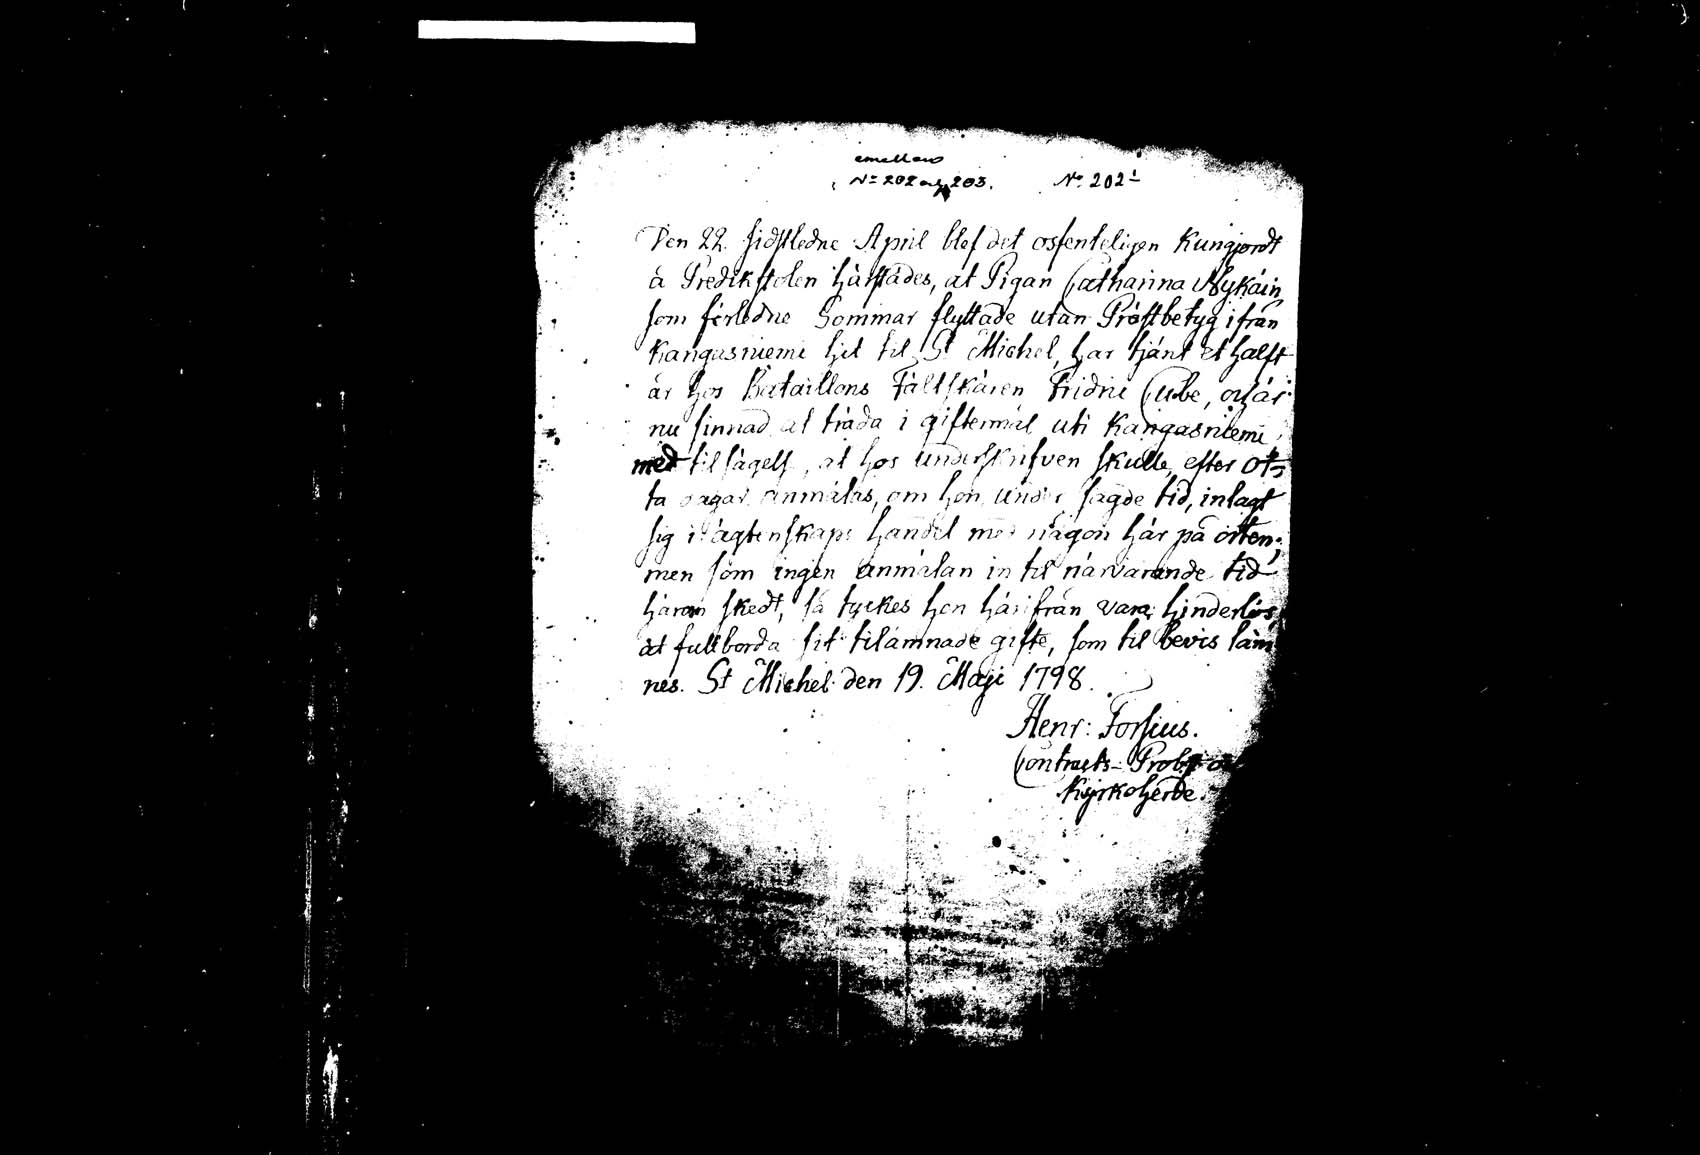 emellan
N:o 202 och 203.
No. 202 1/2
Den 22. sidstledne April blef det offenteligen Kungjordt
å Predikstolen härstädes, at Pigan Catharina Nykäin,
som förledne Sommar flyttade utan Prästbetyg ifrån
Kangasniemi hit til St Michel, har tjänt et halft
år hos Bataillons Fältskären Fridric Cube, och är
nu sinnad at träda i giftermål uti Kangasniemi,
med tilsägelse, at hos underskrifven skulle, efter ot-
ta dagar anmälas, om hon under sagde tid, inlagt
sig i ägtenskaps handel med någon här på orten;
men som ingen anmälan in til närvarande tid
häröm skedt, så tyckes hon härifrån vara hinderlös,
at fullborda sit tilämnade gifte, som til bevis läm
nes. St Michel den 19. Maji 1798.
Henr: Forsius.
Contracts-Probst och
Kyrkoherde.